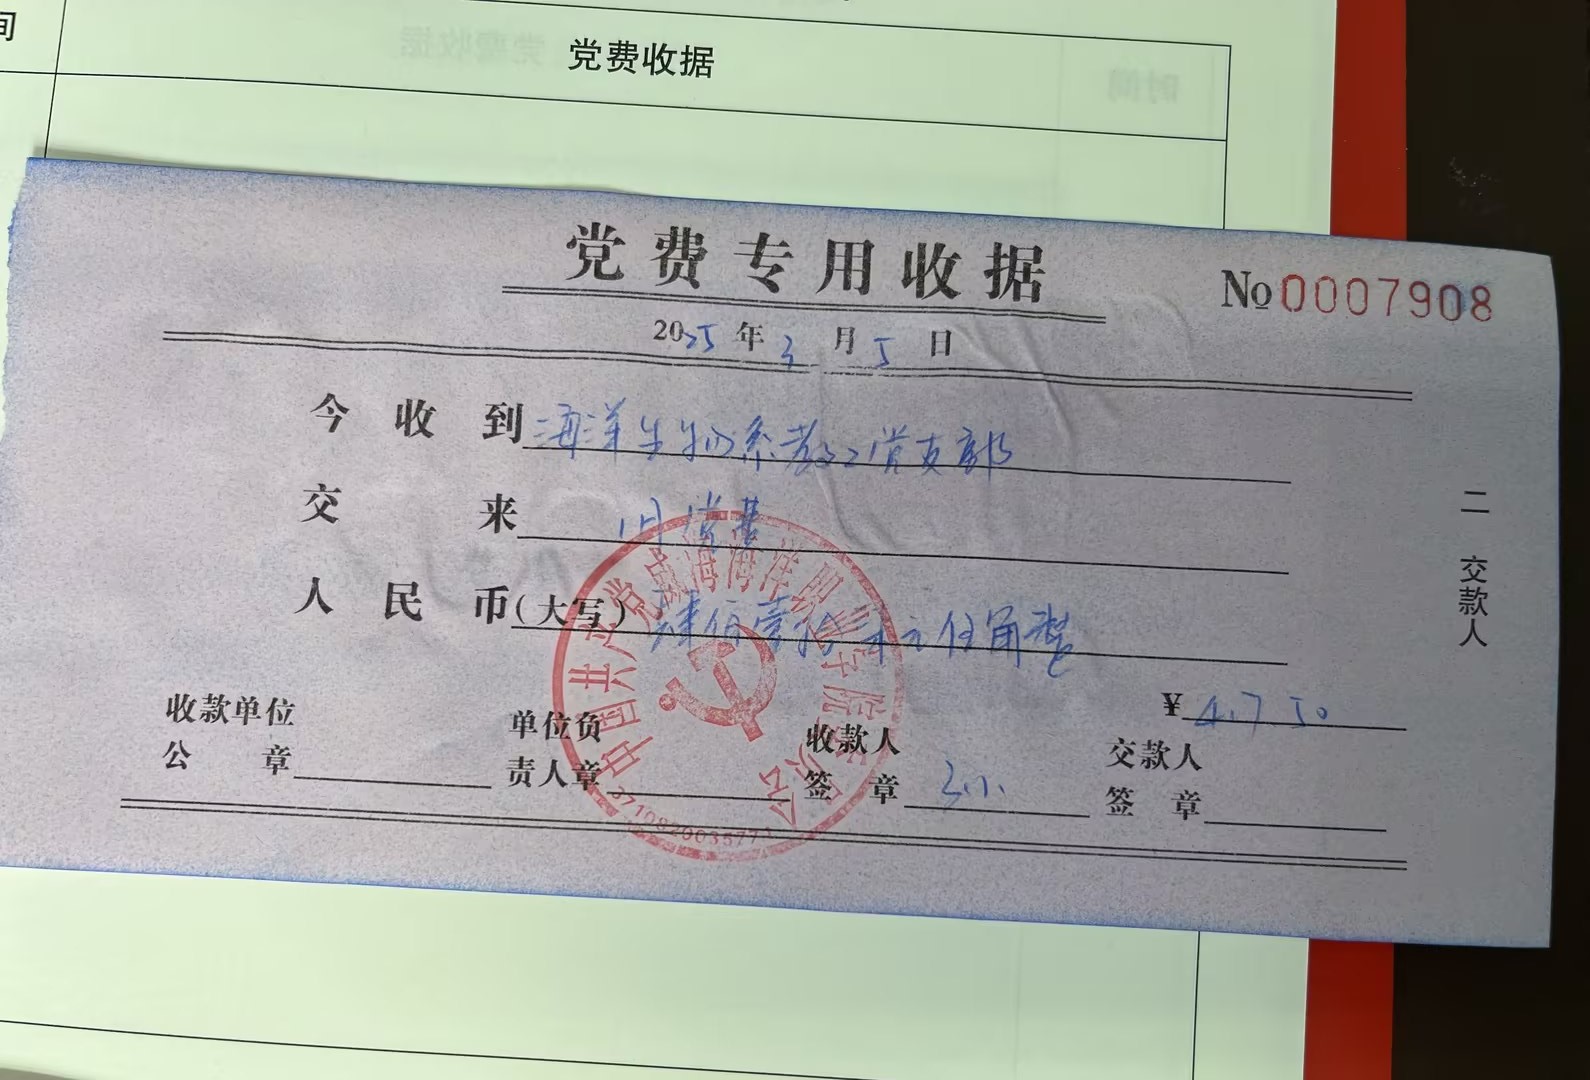 间
党费收据
党费专用收据
No 0007908
2025年3月5日
今收到 海洋生物系教工党支部
交来 1月党费
人民币(大写) 肆佰壹拾 元伍角整
¥ 417.50
收款单位公章
单位负责人章
收款人签章
交款人签章
二 交款人
中国共产党威海海洋职业学院委员会